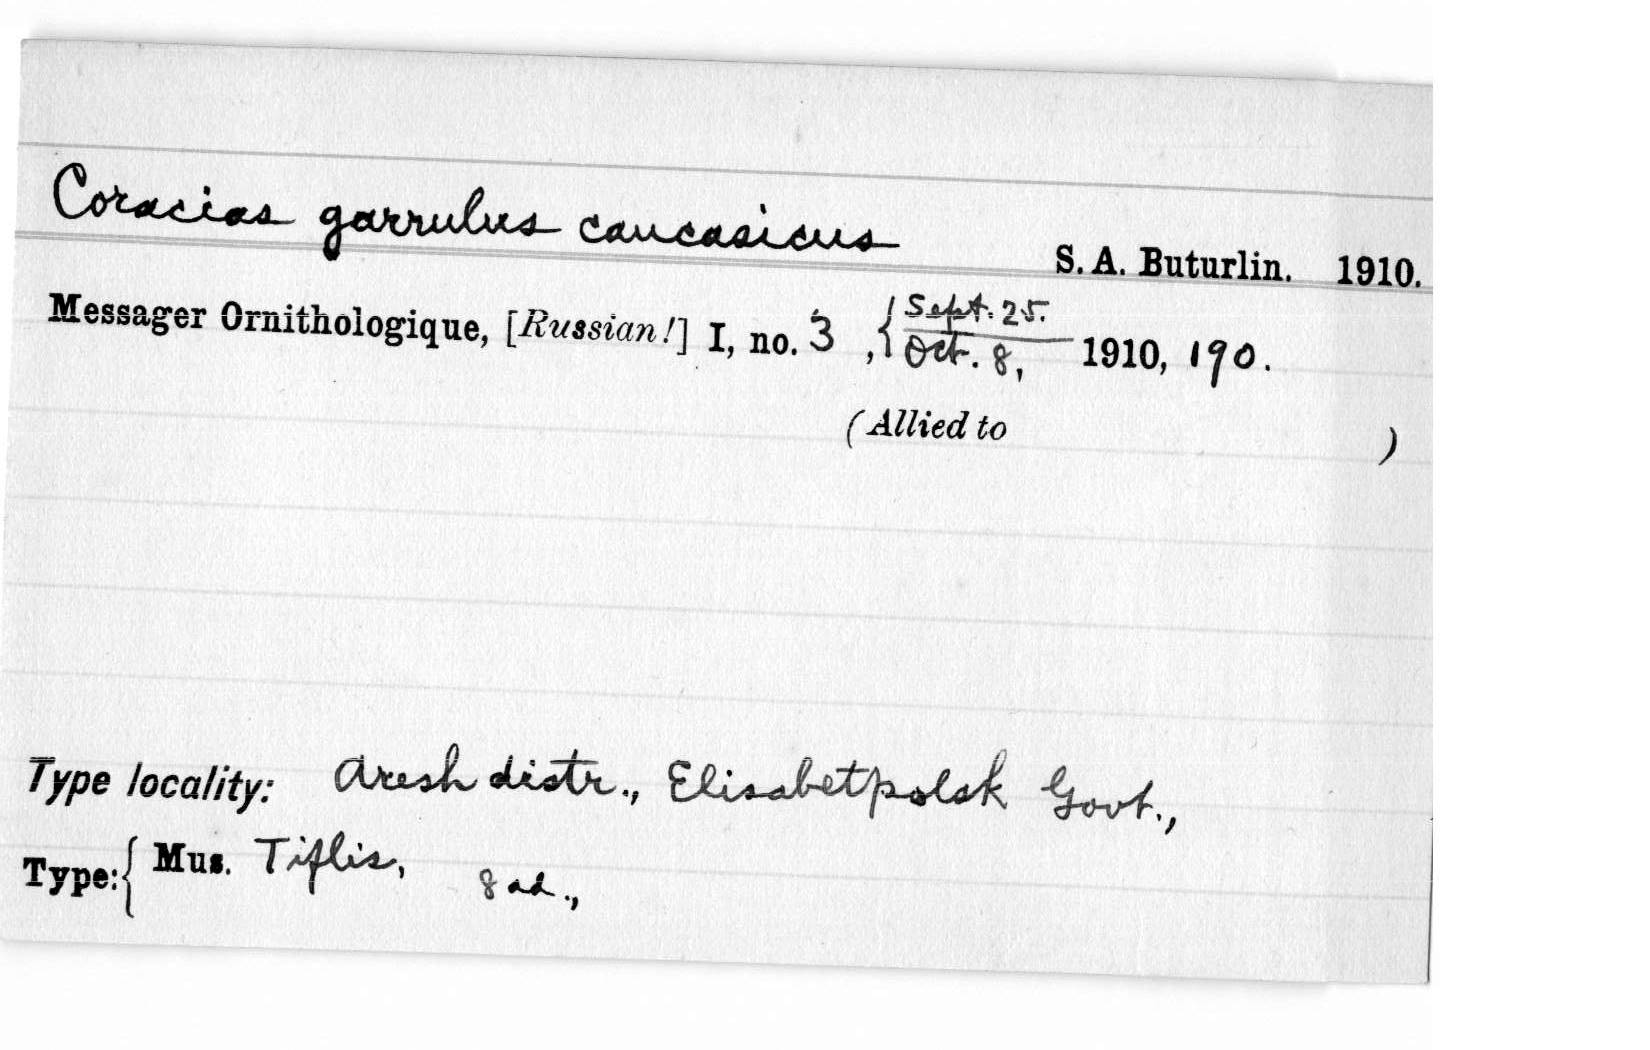 Coracias garrulus caucasicus
S. A. Buturlin. 1910.
Messager Ornithologique, [Russian!] I, no. 3, { Sept. 25. / Oct. 8, 1910, 190.
(Allied to )
Type locality: Aresh distr., Elisabetpolsk Govt.,
Type: { Mus. Tiflis, 8 ad.,